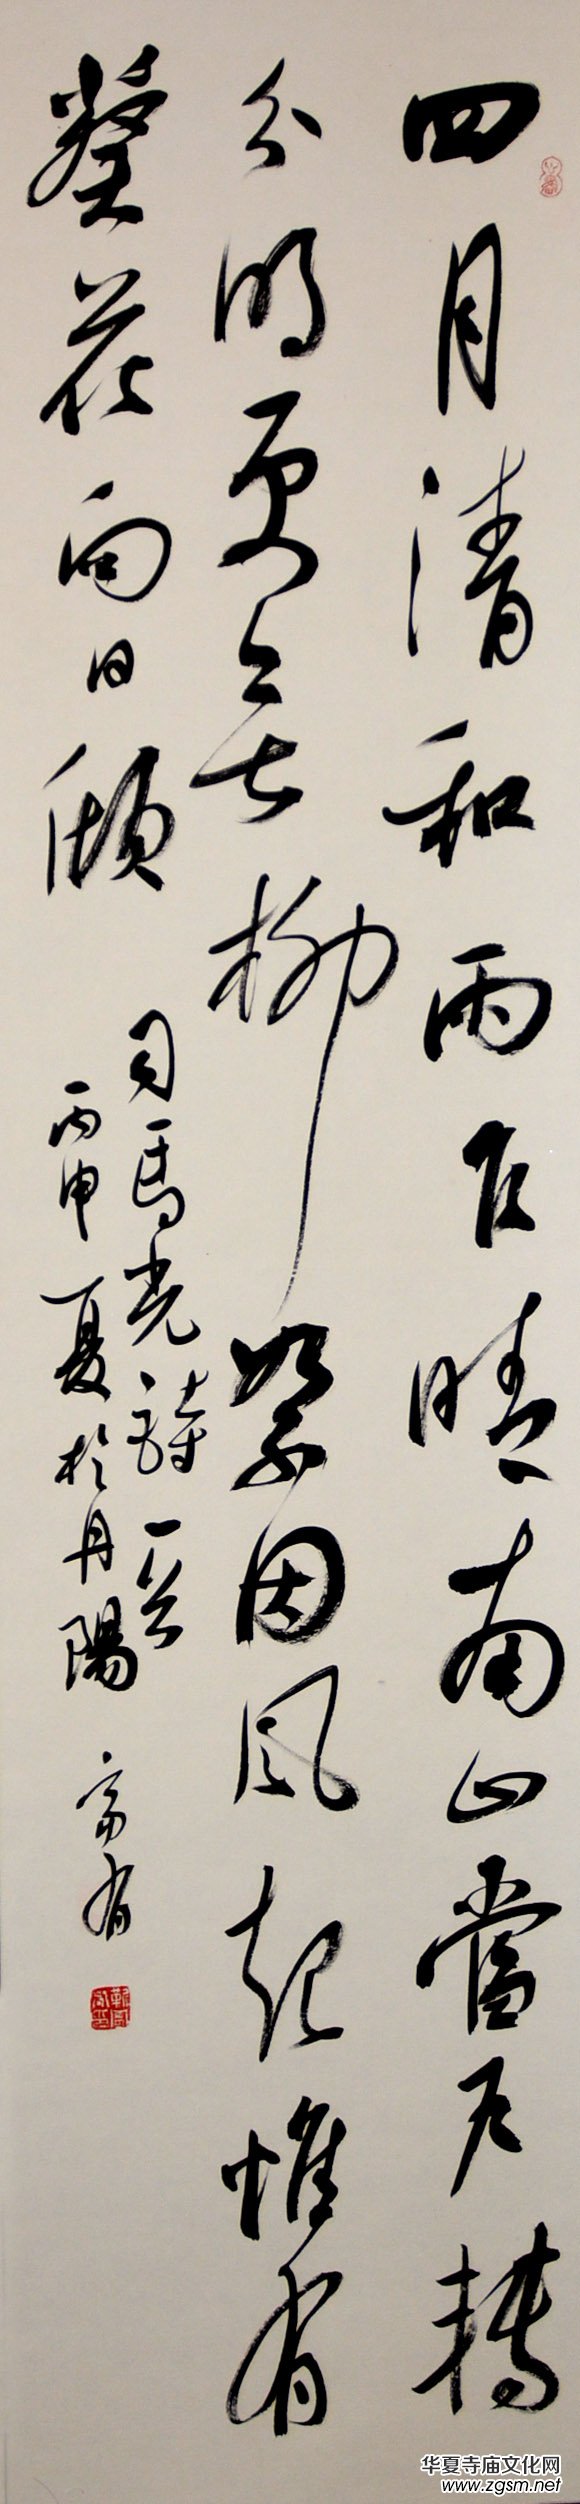 四月清和雨乍晴南山當戶轉
分明更無柳絮因風起惟有
葵花向日傾
司馬光詩一首
丙申夏於丹陽 富有
华夏寺庙文化网
www.zgsm.net